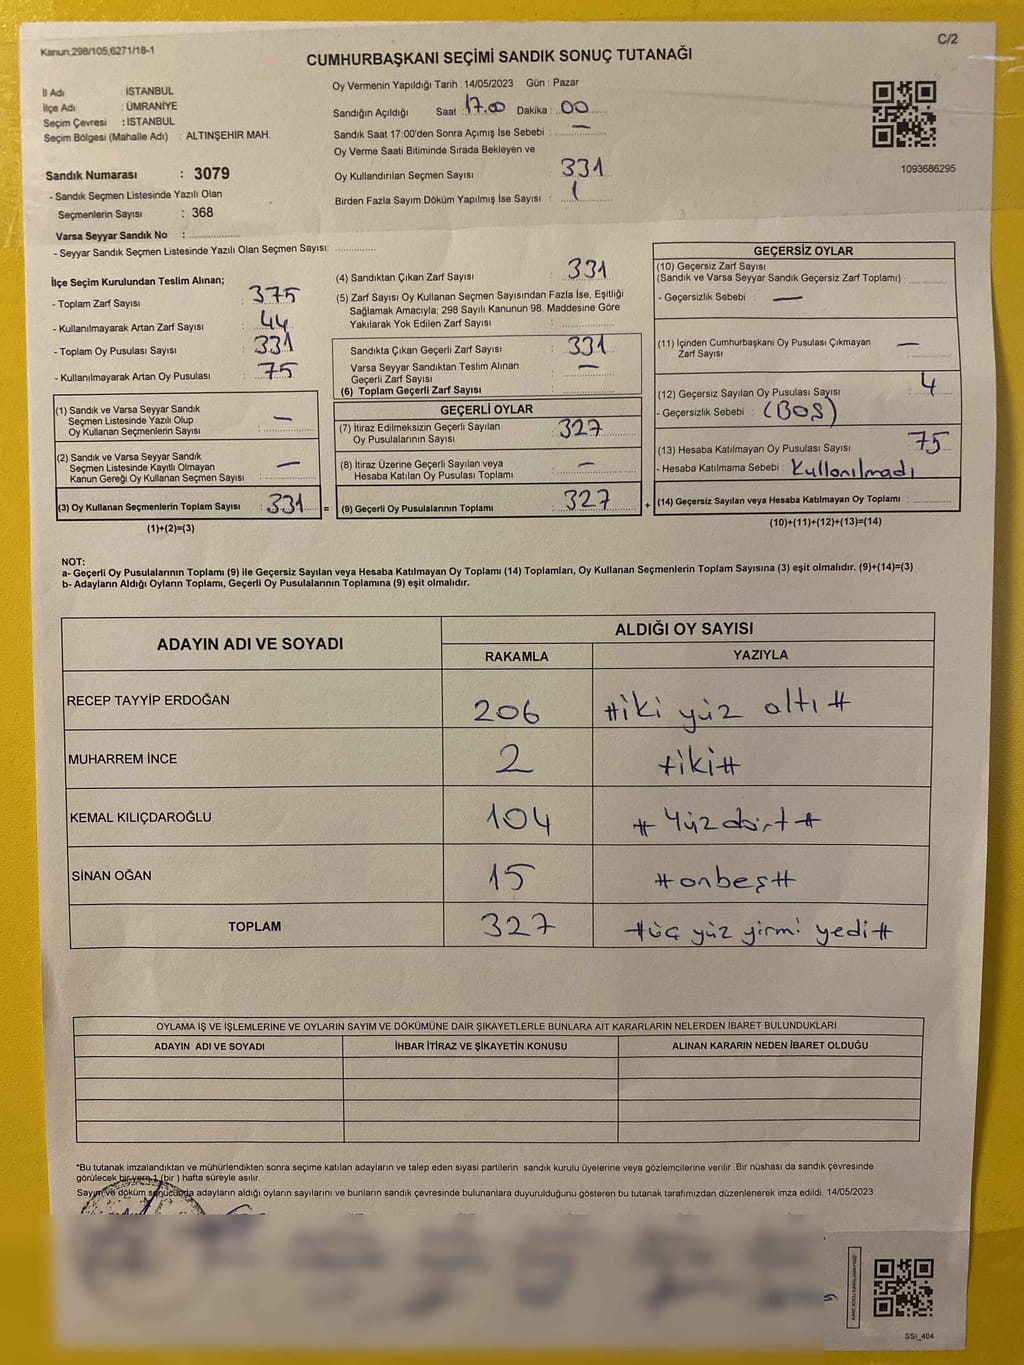 Kanun;298/105,6271/18-1
C/2
CUMHURBAŞKANI SEÇİMİ SANDIK SONUÇ TUTANAĞI
İl Adı : İSTANBUL
İlçe Adı : ÜMRANİYE
Seçim Çevresi : İSTANBUL
Seçim Bölgesi (Mahalle Adı) : ALTINŞEHİR MAH.
Sandık Numarası : 3079
- Sandık Seçmen Listesinde Yazılı Olan
Seçmenlerin Sayısı : 368
Varsa Seyyar Sandık No :
- Seyyar Sandık Seçmen Listesinde Yazılı Olan Seçmen Sayısı:
Oy Vermenin Yapıldığı Tarih : 14/05/2023 Gün : Pazar
Sandığın Açıldığı Saat 17.00 Dakika : 00
Sandık Saat 17:00'den Sonra Açımış İse Sebebi : —
Oy Verme Saati Bitiminde Sırada Bekleyen ve
Oy Kullandırılan Seçmen Sayısı : 331
Birden Fazla Sayım Döküm Yapılmış İse Sayısı : 1
1093686295
İlçe Seçim Kurulundan Teslim Alınan;
- Toplam Zarf Sayısı : 375
- Kullanılmayarak Artan Zarf Sayısı : 44
- Toplam Oy Pusulası Sayısı : 331
- Kullanılmayarak Artan Oy Pusulası : 75
(1) Sandık ve Varsa Seyyar Sandık
Seçmen Listesinde Yazılı Olup
Oy Kullanan Seçmenlerin Sayısı : —
(2) Sandık ve Varsa Seyyar Sandık
Seçmen Listesinde Kayıtlı Olmayan
Kanun Gereği Oy Kullanan Seçmen Sayısı : —
(3) Oy Kullanan Seçmenlerin Toplam Sayısı : 331 =
(1)+(2)=(3)
(4) Sandıktan Çıkan Zarf Sayısı : 331
(5) Zarf Sayısı Oy Kullanan Seçmen Sayısından Fazla İse, Eşitliği
Sağlamak Amacıyla; 298 Sayılı Kanunun 98. Maddesine Göre
Yakılarak Yok Edilen Zarf Sayısı :
Sandıkta Çıkan Geçerli Zarf Sayısı : 331
Varsa Seyyar Sandıktan Teslim Alınan
Geçerli Zarf Sayısı : —
(6) Toplam Geçerli Zarf Sayısı :
GEÇERLİ OYLAR
(7) İtiraz Edilmeksizin Geçerli Sayılan
Oy Pusulalarının Sayısı : 327
(8) İtiraz Üzerine Geçerli Sayılan veya
Hesaba Katılan Oy Pusulası Toplamı : —
(9) Geçerli Oy Pusulalarının Toplamı : 327 +
GEÇERSİZ OYLAR
(10) Geçersiz Zarf Sayısı
(Sandık ve Varsa Seyyar Sandık Geçersiz Zarf Toplamı) :
- Geçersizlik Sebebi : —
(11) İçinden Cumhurbaşkanı Oy Pusulası Çıkmayan
Zarf Sayısı : —
(12) Geçersiz Sayılan Oy Pusulası Sayısı : 4
- Geçersizlik Sebebi : (BOŞ)
(13) Hesaba Katılmayan Oy Pusulası Sayısı : 75
- Hesaba Katılmama Sebebi : Kullanılmadı
(14) Geçersiz Sayılan veya Hesaba Katılmayan Oy Toplamı :
(10)+(11)+(12)+(13)=(14)
NOT:
a- Geçerli Oy Pusulalarının Toplamı (9) ile Geçersiz Sayılan veya Hesaba Katılmayan Oy Toplamı (14) Toplamları, Oy Kullanan Seçmenlerin Toplam Sayısına (3) eşit olmalıdır. (9)+(14)=(3)
b- Adayların Aldığı Oyların Toplamı, Geçerli Oy Pusulalarının Toplamına (9) eşit olmalıdır.
ADAYIN ADI VE SOYADI ALDIĞI OY SAYISI
RAKAMLA YAZIYLA
RECEP TAYYİP ERDOĞAN 206 #iki yüz altı#
MUHARREM İNCE 2 #iki#
KEMAL KILIÇDAROĞLU 104 #Yüzdört#
SİNAN OĞAN 15 #onbeş#
TOPLAM 327 #üç yüz yirmi yedi#
OYLAMA İŞ VE İŞLEMLERİNE VE OYLARIN SAYIM VE DÖKÜMÜNE DAİR ŞİKAYETLERLE BUNLARA AİT KARARLARIN NELERDEN İBARET BULUNDUKLARI
ADAYIN ADI VE SOYADI İHBAR İTİRAZ VE ŞİKAYETİN KONUSU ALINAN KARARIN NEDEN İBARET OLDUĞU
*Bu tutanak imzalandıktan ve mühürlendikten sonra seçime katılan adayların ve talep eden siyasi partilerin sandık kurulu üyelerine veya gözlemcilerine verilir .Bir nüshası da sandık çevresinde
görülecek bir yere 1 (bir ) hafta süreyle asılır.
Sayım ve döküm sonucunda adayların aldığı oyların sayılarını ve bunların sandık çevresinde bulunanlara duyurulduğunu gösteren bu tutanak tarafımızdan düzenlenerek imza edildi. 14/05/2023
SSİ_404